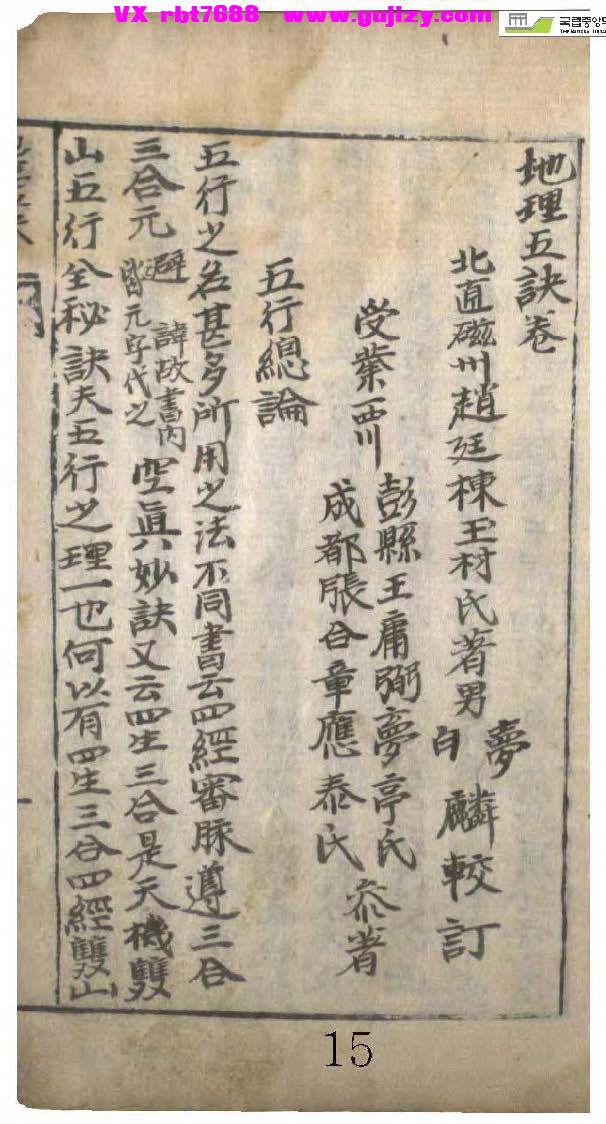 VX rbt7688 www.gujizy.com
地理五訣卷
北直磁州趙廷棟玉材氏著男 夢 白 麟較訂
受業西川 彭縣王庸弼夢亭氏
成都張含章應泰氏 叅著
五行總論
五行之名甚多所用之法不同書云四經審脉遵三合
三合元 避諱故書內 皆元字代之 空眞妙訣又云四生三合是天機雙
山五行全秘訣夫五行之理一也何以有四生三合四經雙山
15